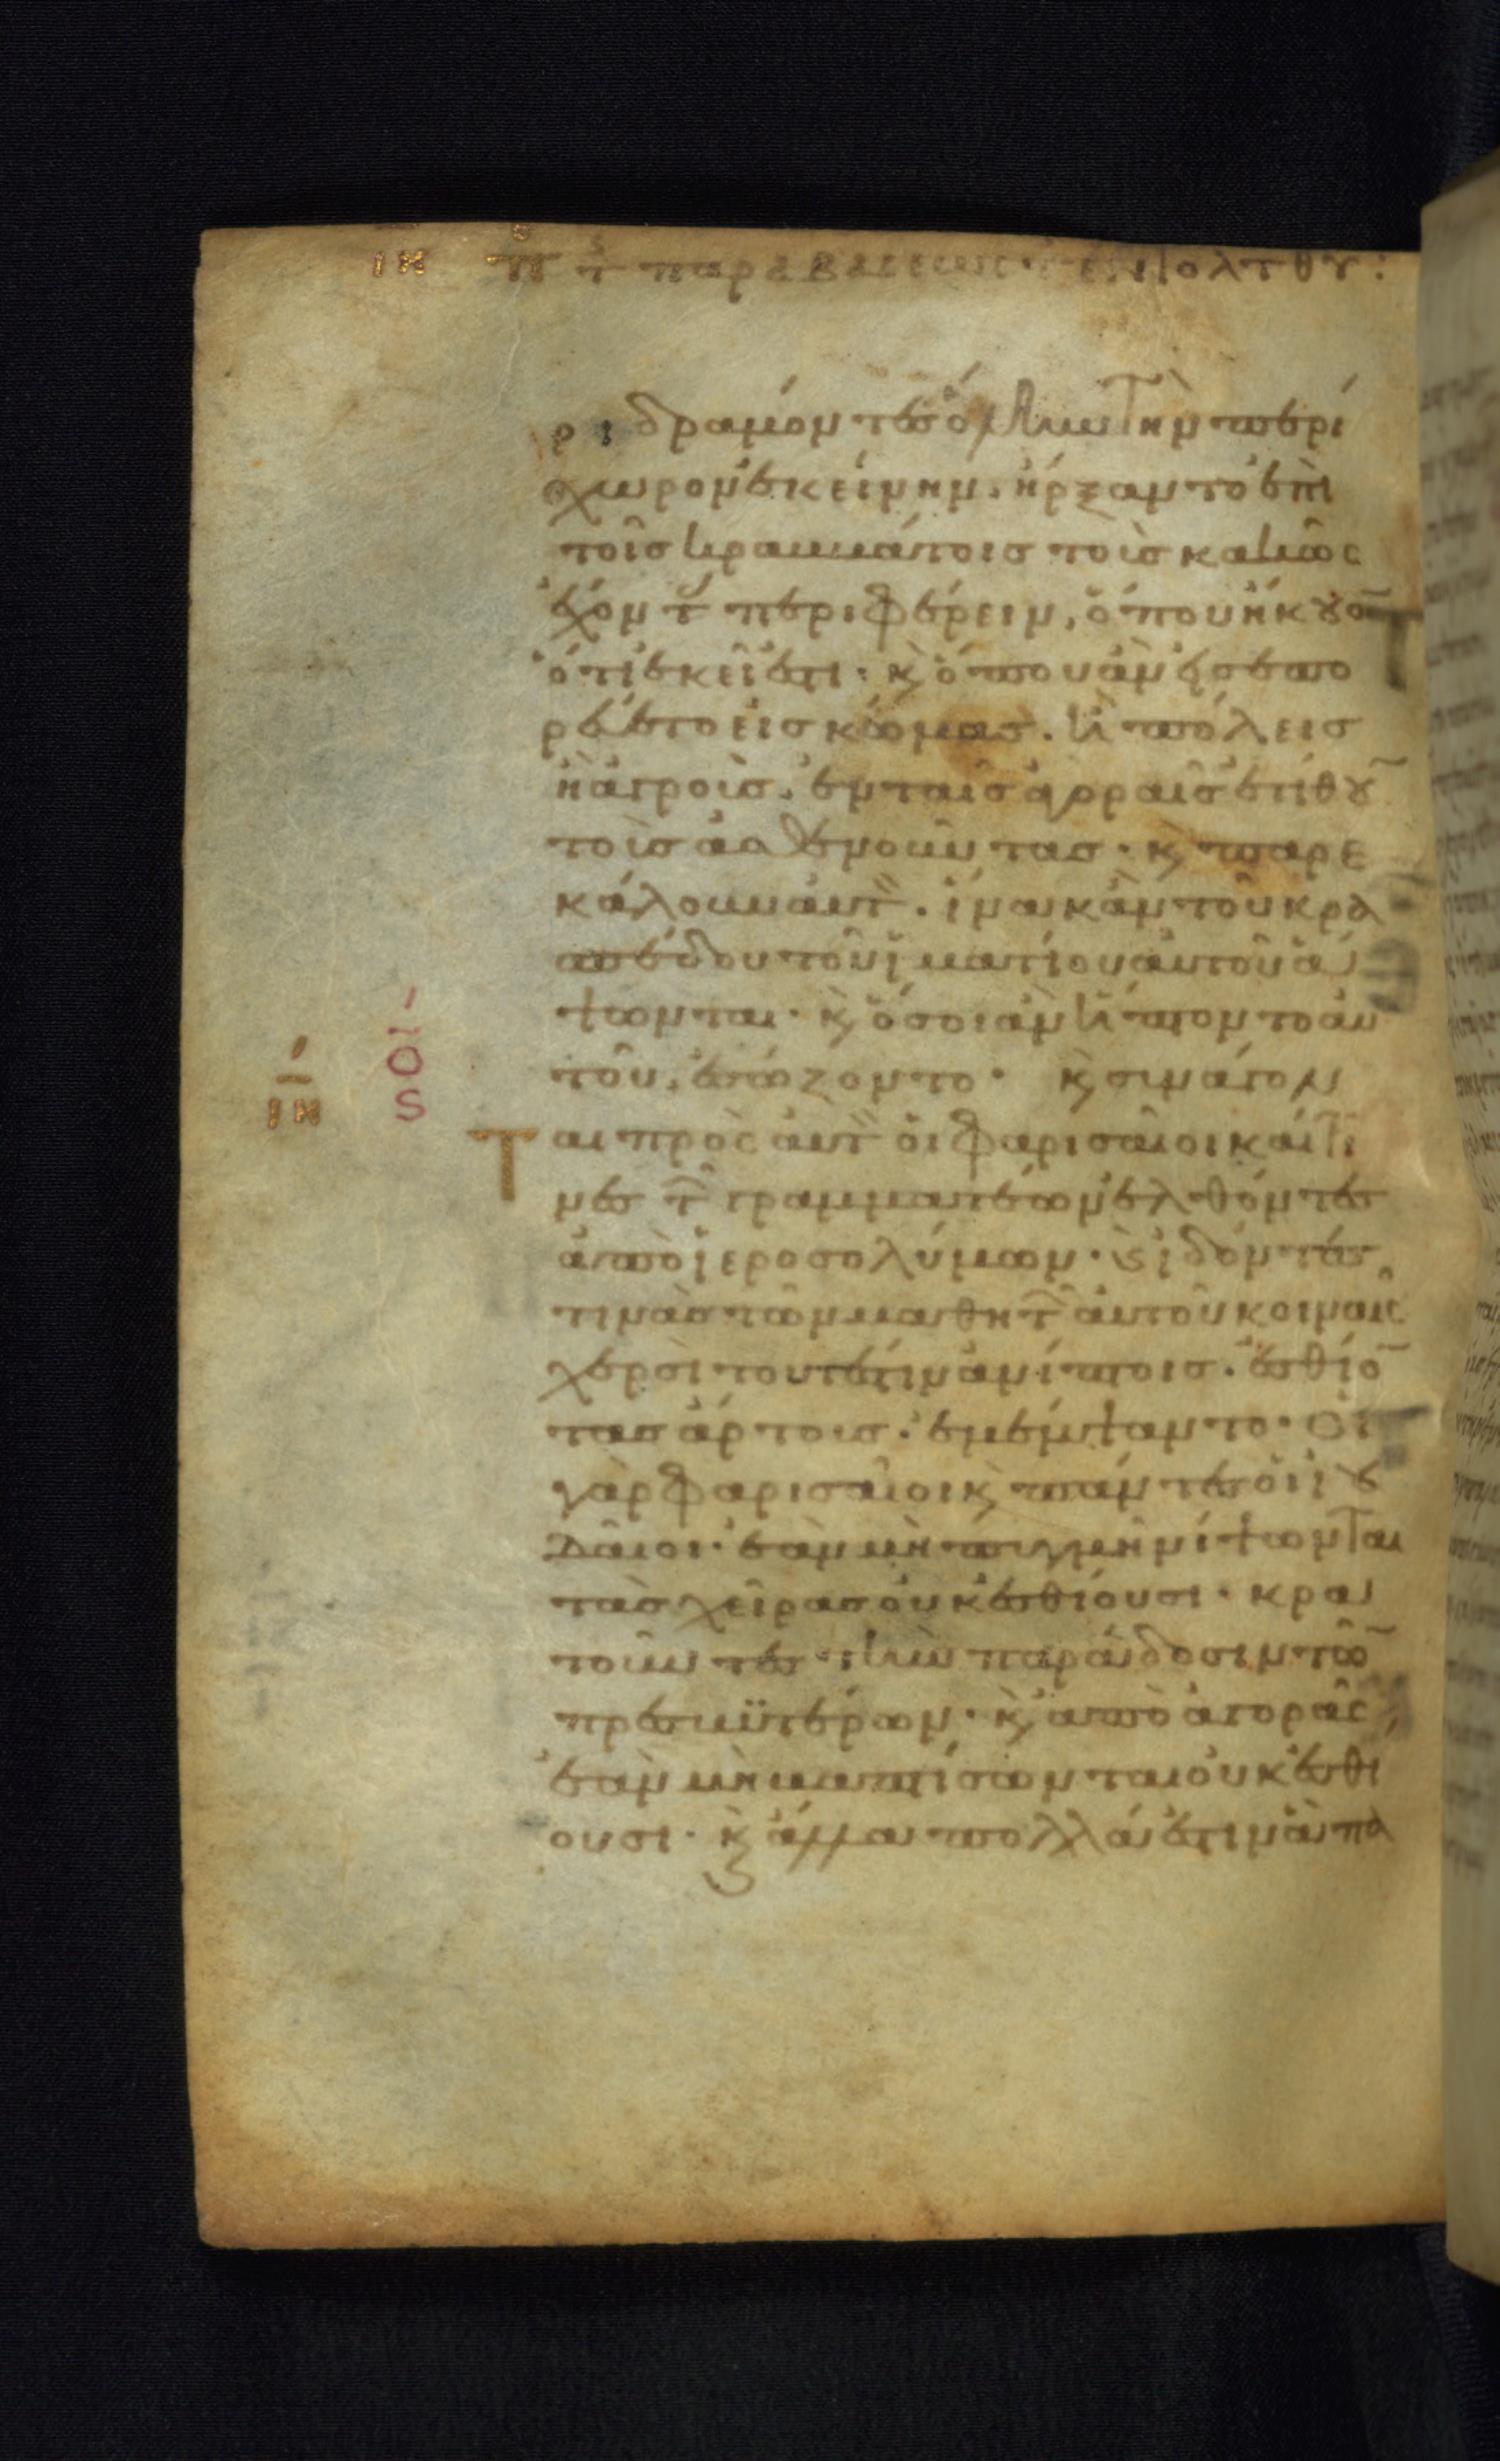 ιη π τ παραβάσεως τ ἐντολ τ θυ:
ριδραμόντες ὅλην τὴν περί
χωρον ἐκείνην. ἤρξαντο ἐπὶ
τοῖς κραββάτοις τοὺς κακῶς
ἔχοντ περιφέρειν, ὅπου ἤκουο
ὅτι ἐκεῖ ἐστι· κ ὅπου ἂν εἰσεπο
ρεύετο εἰς κώμας. ἢ πόλεις
ἢ ἀγρούς. ἐν ταῖς ἀγοραῖς ἐτίθου
τοὺς ἀσθενοῦντας· κ παρε
κάλουν αὐτ. ἵνα κἂν τοῦ κρα
σπέδου τοῦ ἱματίου αὐτοῦ ἅ
ψωνται· κ ὅσοι ἂν ἥπτοντο αὐ
τοῦ, ἐσώζοντο· κ συνάγον
ται πρὸς αὐτ οἱ φαρισαῖοι καί τι
νες τ γραμματέων ἐλθόντες
ἀπὸ ἱεροσολύμων· κ ἰδόντες
τινὰς τῶν μαθητ αὐτοῦ κοιναῖς
χερσὶ τουτέστιν ἀνίπτοις. ἐσθίο
τας ἄρτους. ἐμέμψαντο· οἱ
γὰρ φαρισαῖοι κ πάντες οἱ ἰου
δαῖοι· ἐὰν μὴ πυγμῇ νίψωνται
τὰς χεῖρας οὐκ ἐσθίουσι· κρα
τοῦντες τὴν παράδοσιν τῶ
πρεσβυτέρων· κ ἀπὸ ἀγορᾶς
ἐὰν μὴ βαπτίσωνται οὐκ ἐσθί
ουσι· κ ἄλλα πολλά ἐστιν ἃ πα
ιη
ος